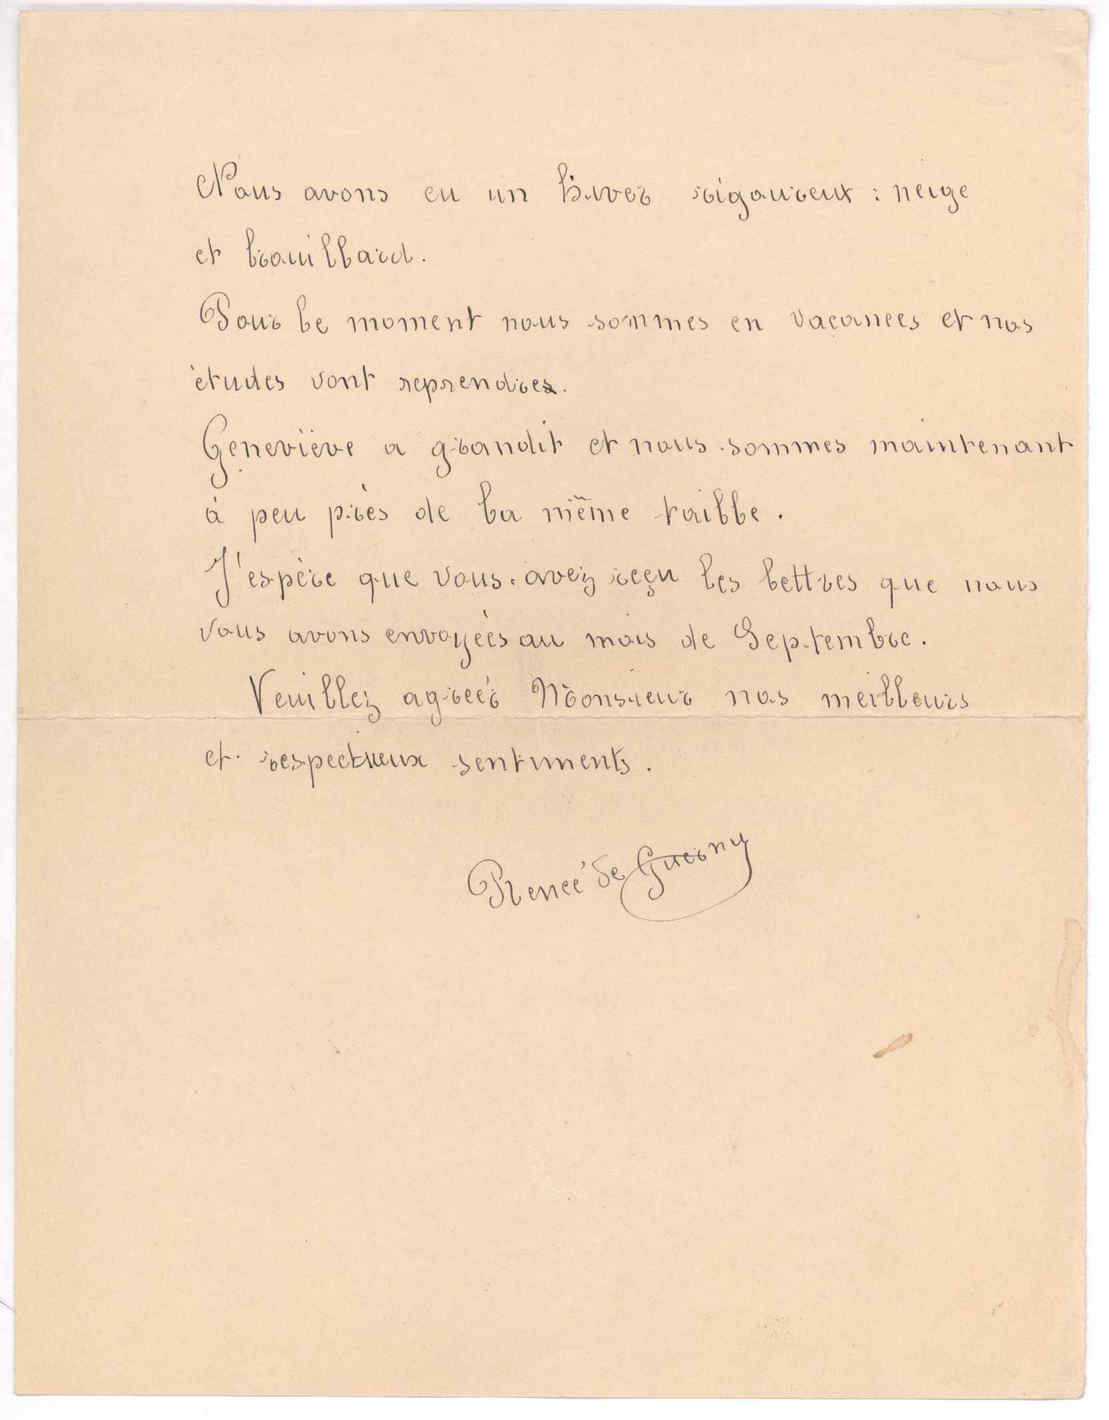 Nous avons eu un hiver rigoureux : neige
et brouillard.
Pour le moment nous sommes en vacances et nos
études vont reprendres.
Geneviève a grandit et nous sommes maintenant
à peu près de la même taille.
J'espère que vous avez reçu les lettres que nous
vous avons envoyées au mois de Septembre.
Veuillez agréér Monsieur nos meilleurs
et respectueux sentiments.
Renée de Guerny